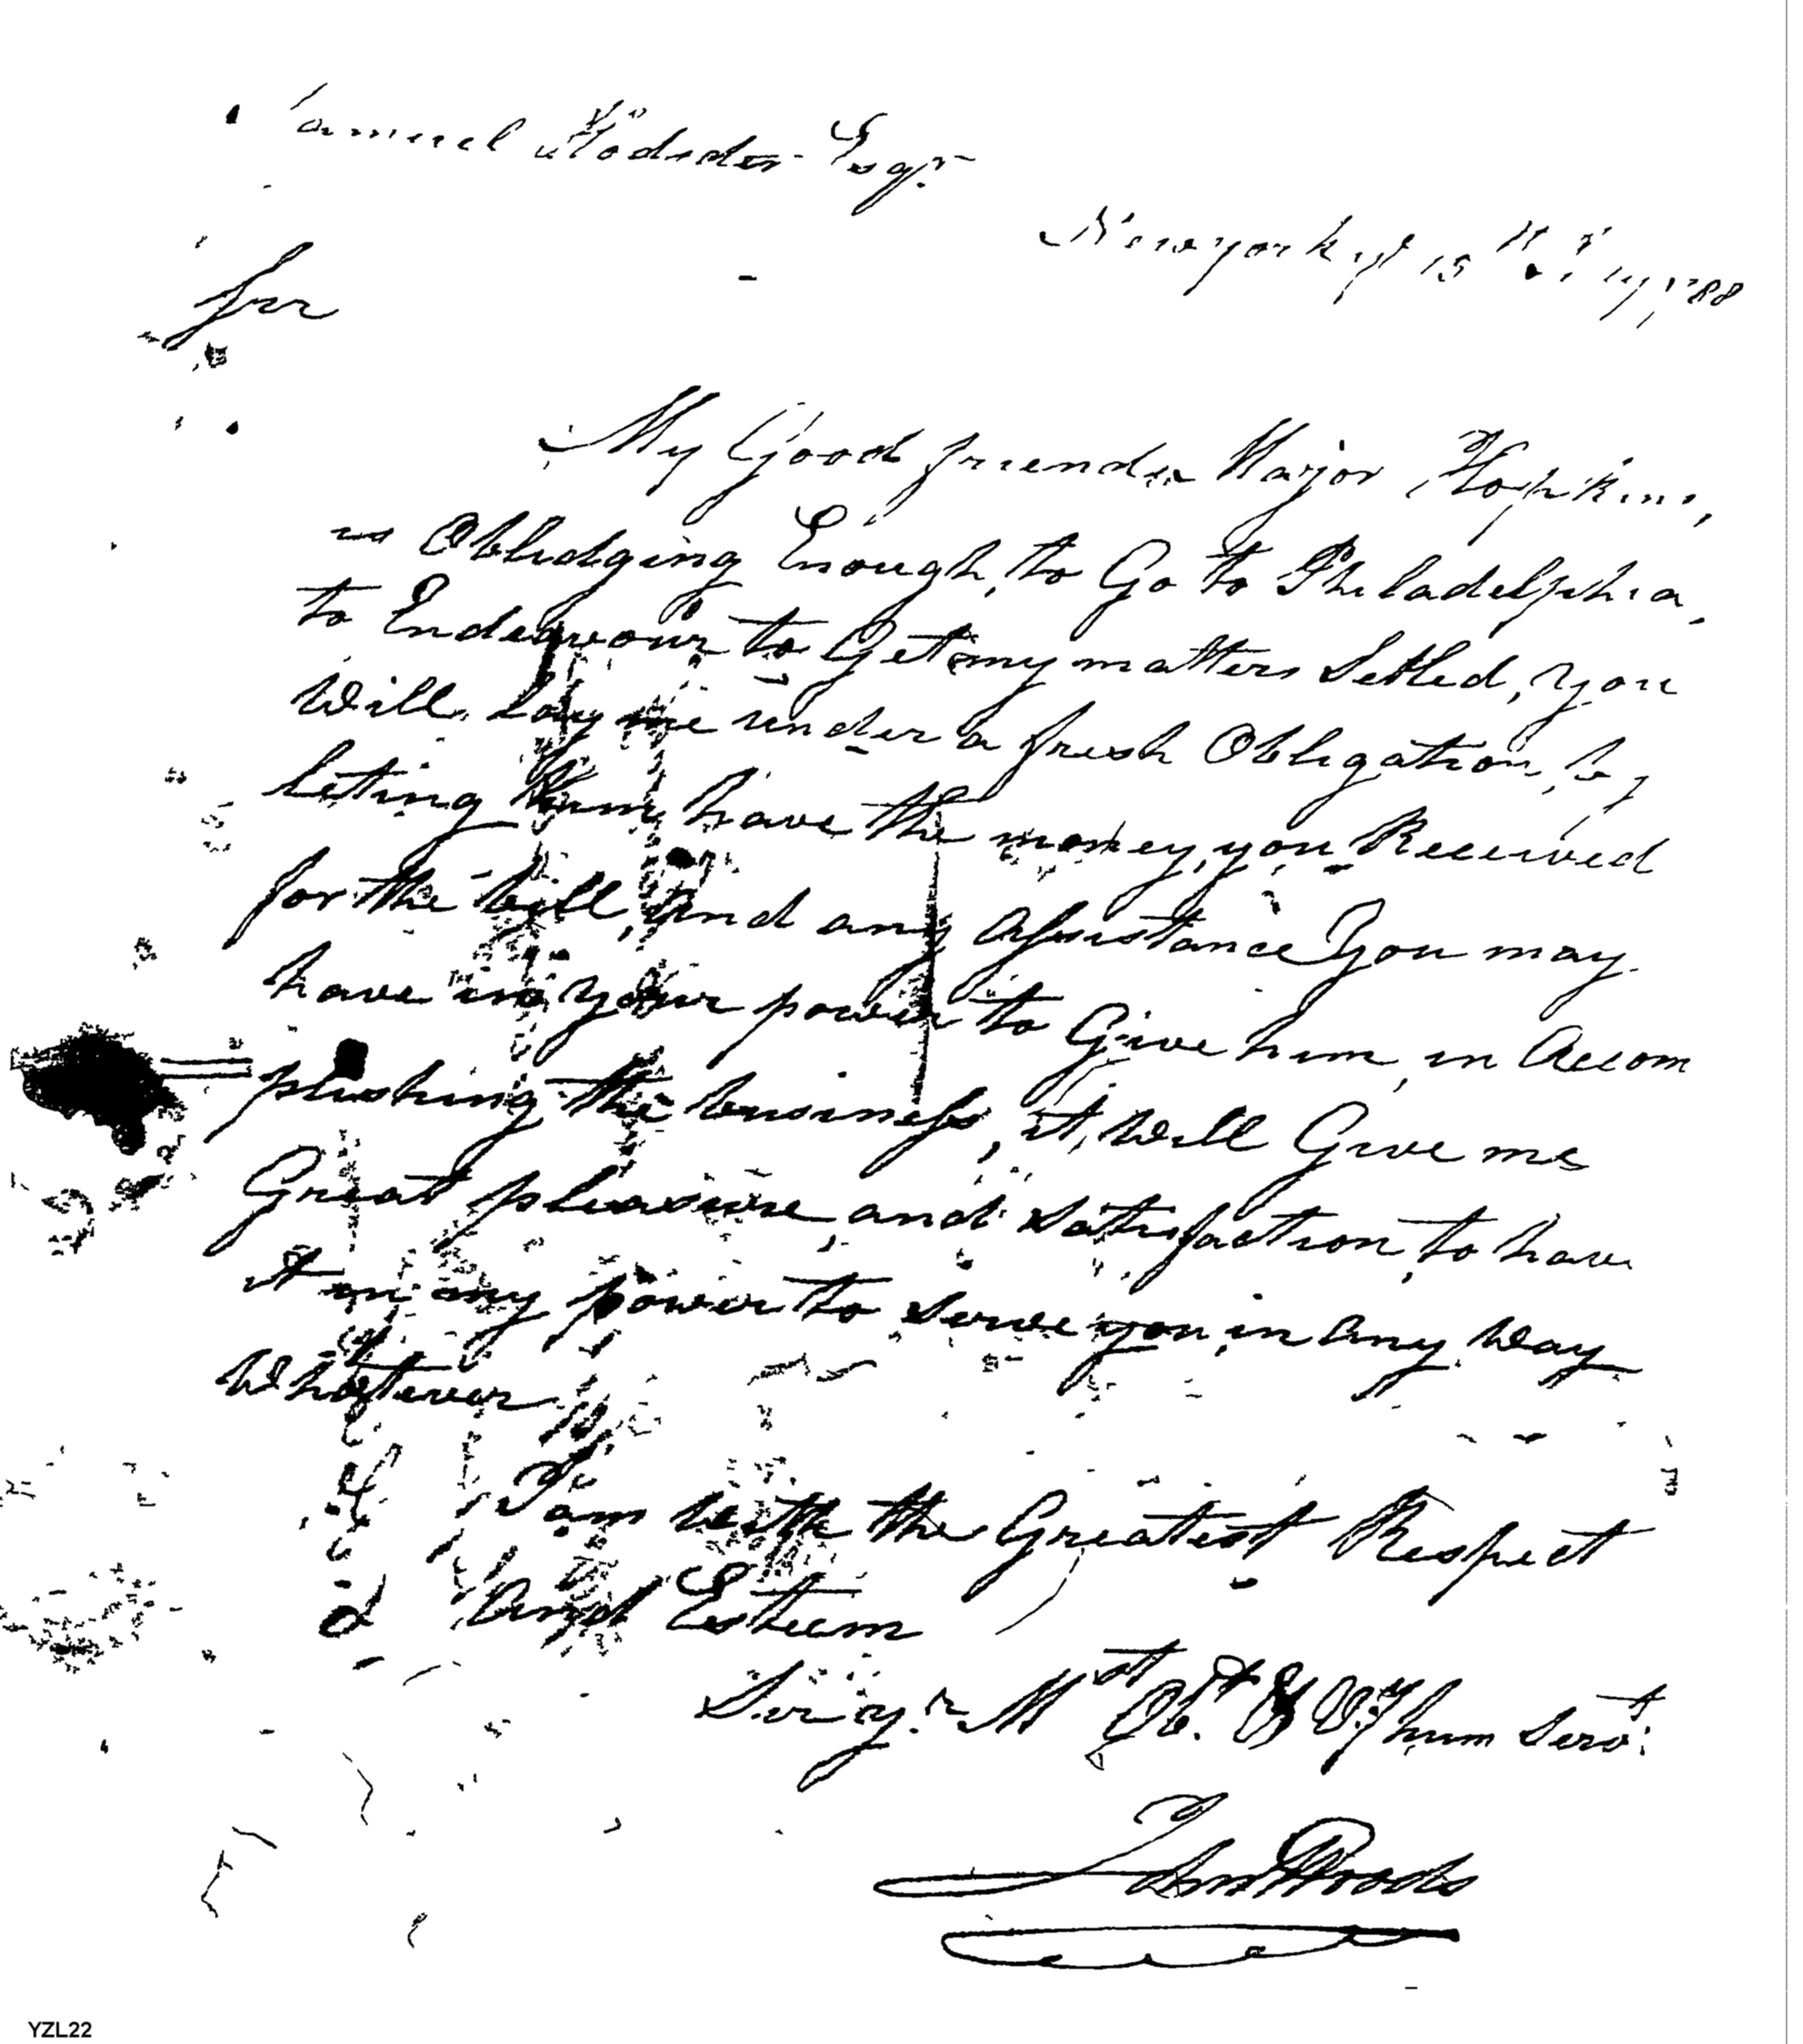 Samuel Hodsdon Esqr.
Newyork ye 15th Augt 1788
Sir
My Good friend Major Hopkins,
is Oblidging Enough, to Go to Philadelphia,
to Endeavour to Get my matters Setled, you
Will Lay me under a fresh Obligation, by
leting him have the money, you Received
for the bill, And any Assistance You may
have in your power to Give him, in Accom
plishing the business, it Will Give me
Great pleasure and Satisfaction, to have
it in my power to serve you in Any Way
Whatever
I am With the Greatest Respect
And Esteem
Sir yr. Mst Obt. & Vy hum Servt.
Woods
YZL22